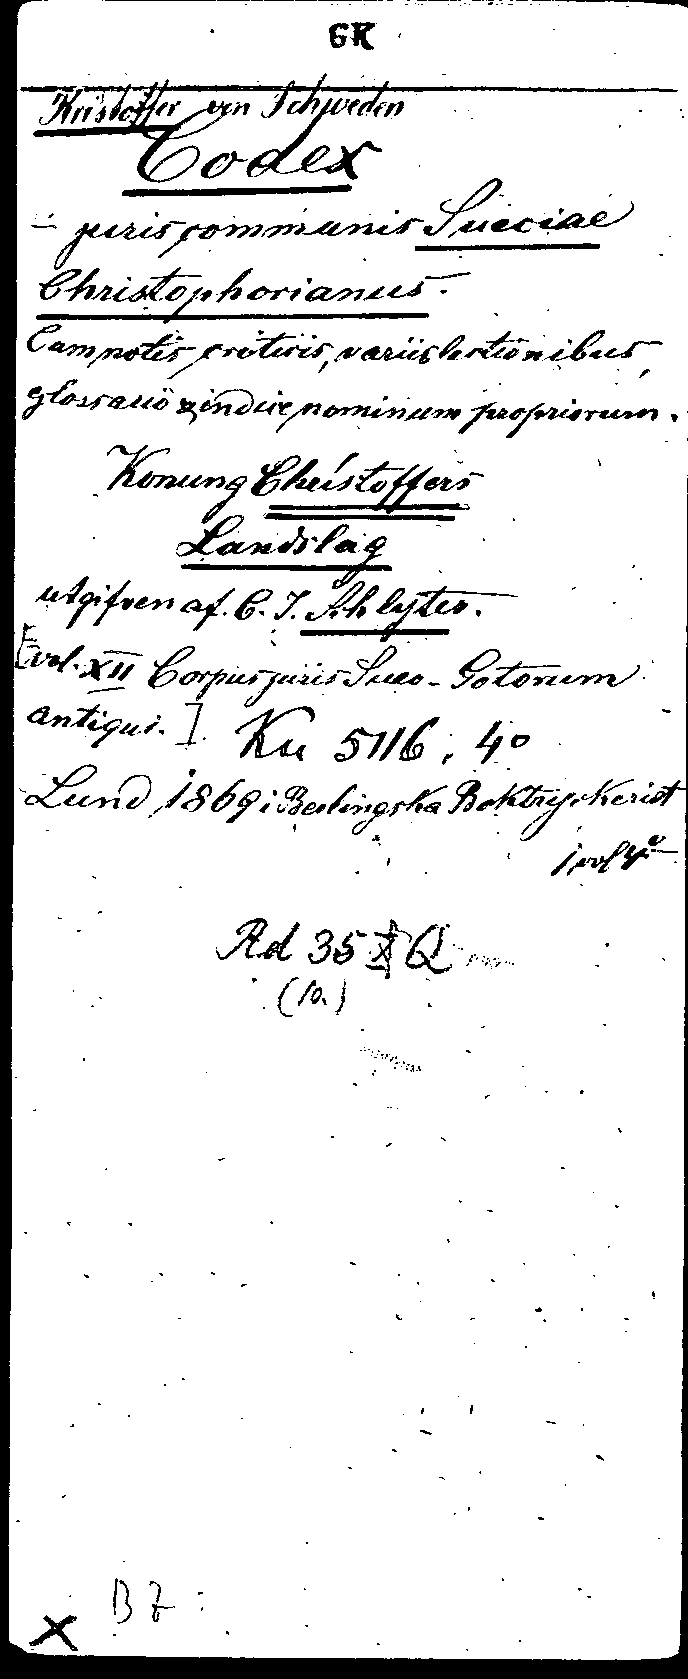 GK
Kristoffer von Schweden
Codex
- juris communis Sueciae
Christophorianus.
Cum notis criticis, variis lectionibus,
glossario & indice nominum propriorum.
Konung Christoffers
Landslag
utgifven af. C. J. Schlyter.
[vol. XII Corpus juris Sueo-Gotorum
antiqui.]. Ku 5116, 4°
Lund 1869 i Berlingska Boktryckeriet
1 vol 4°
Rd 35 Q
(10.)
B Z
X